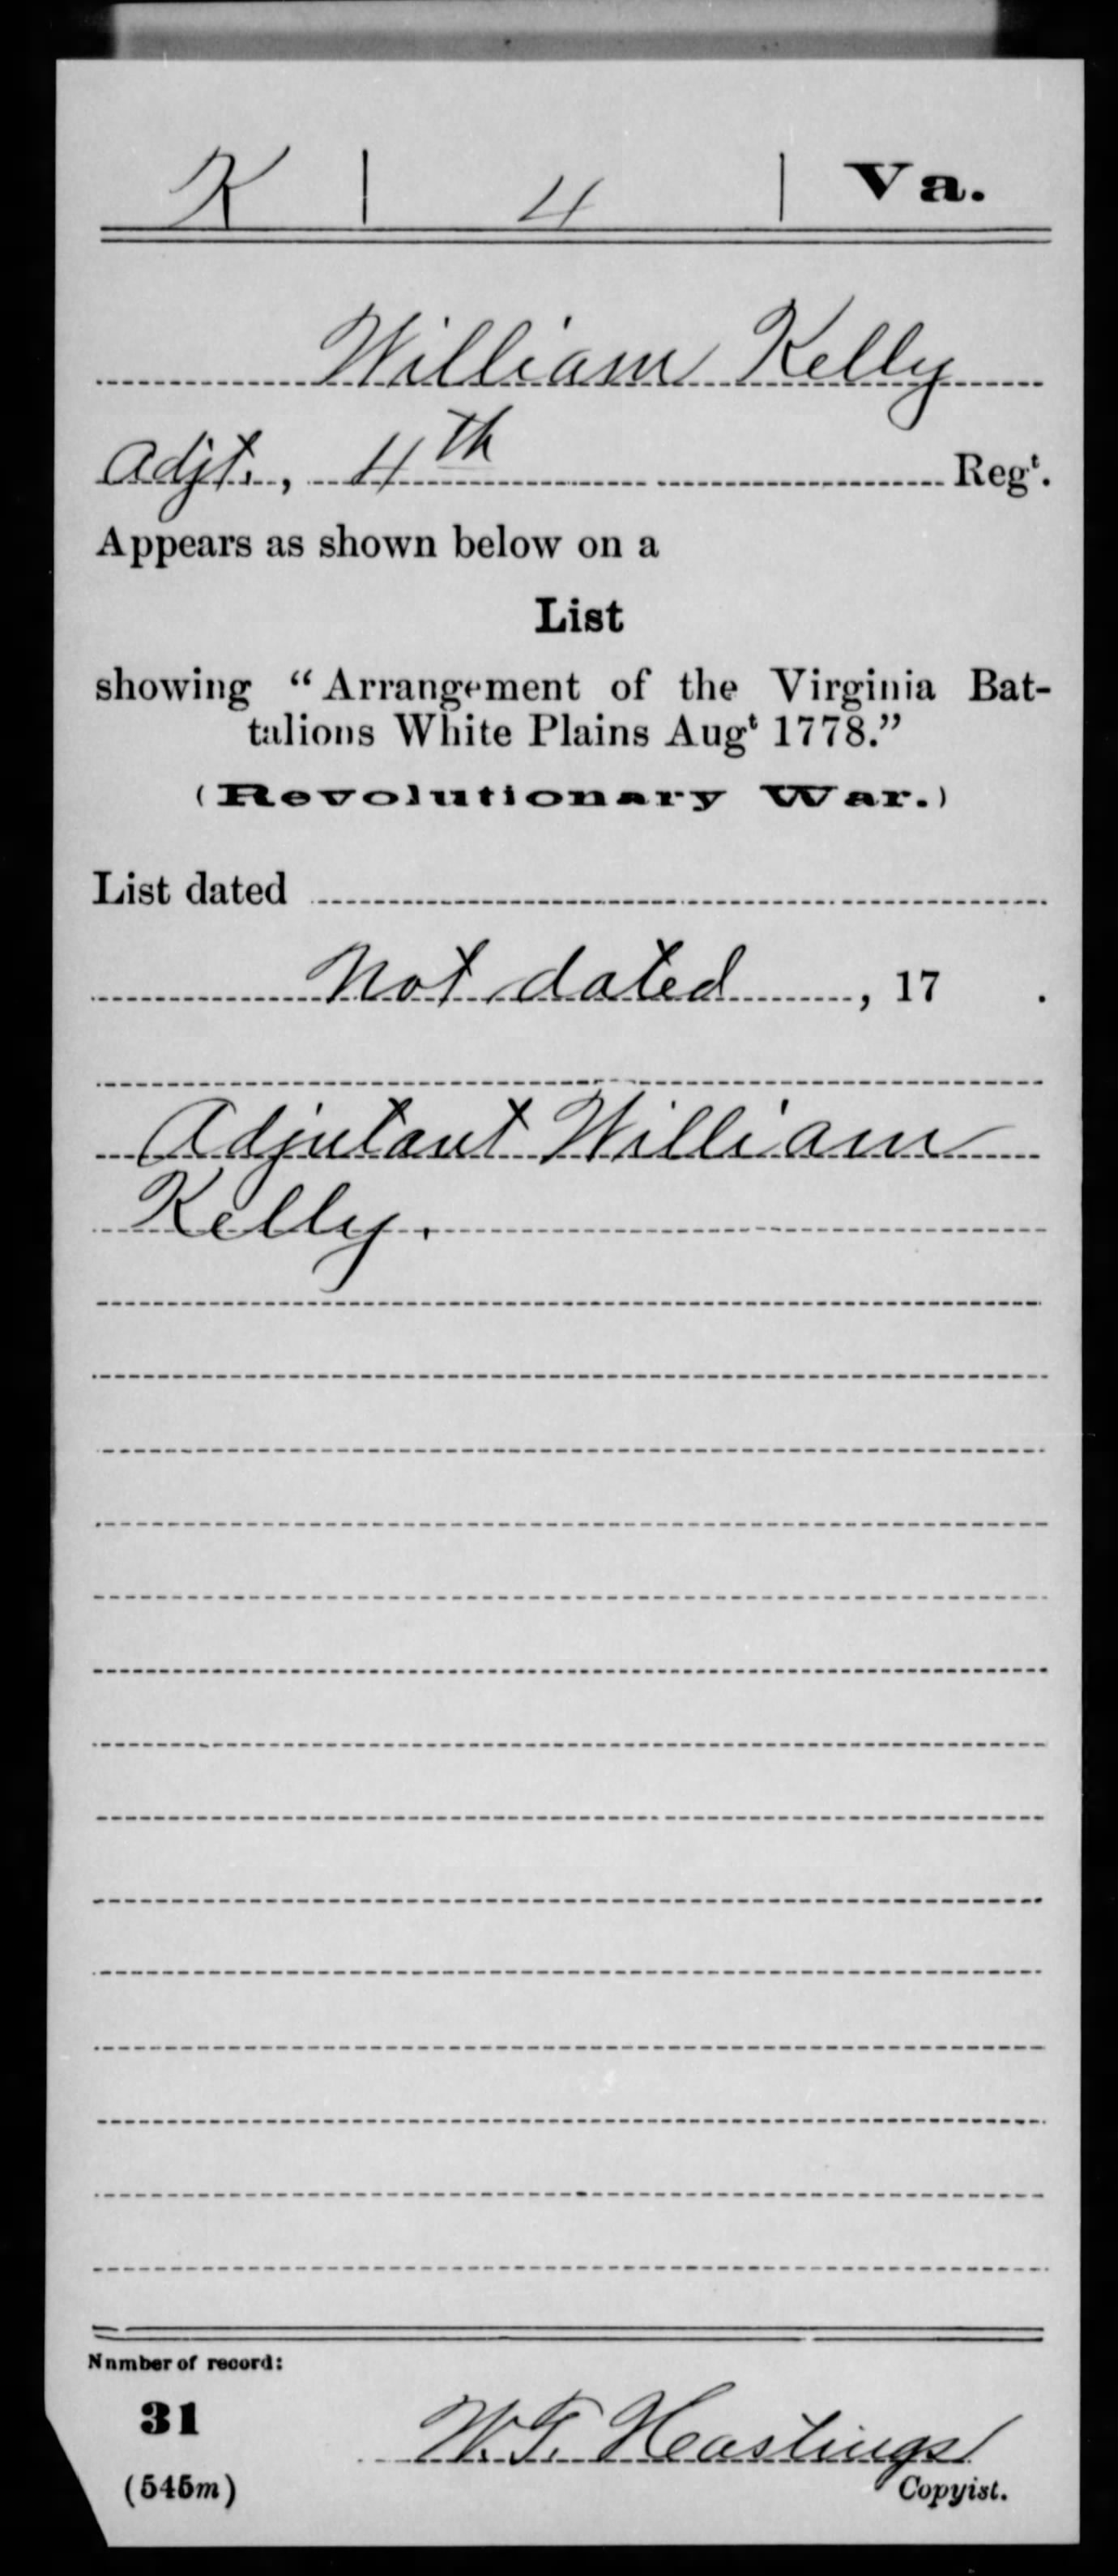 K | 4 | Va.
William Kelly
Adjt., 4th Regt.
Appears as shown below on a
List
showing “Arrangement of the Virginia Bat-
talions White Plains Augt 1778.”
(Revolutionary War.)
List dated
Not dated, 17 .
Adjutant William
Kelly.
Number of record:
31
W.T. Hastings
(545m)
Copyist.